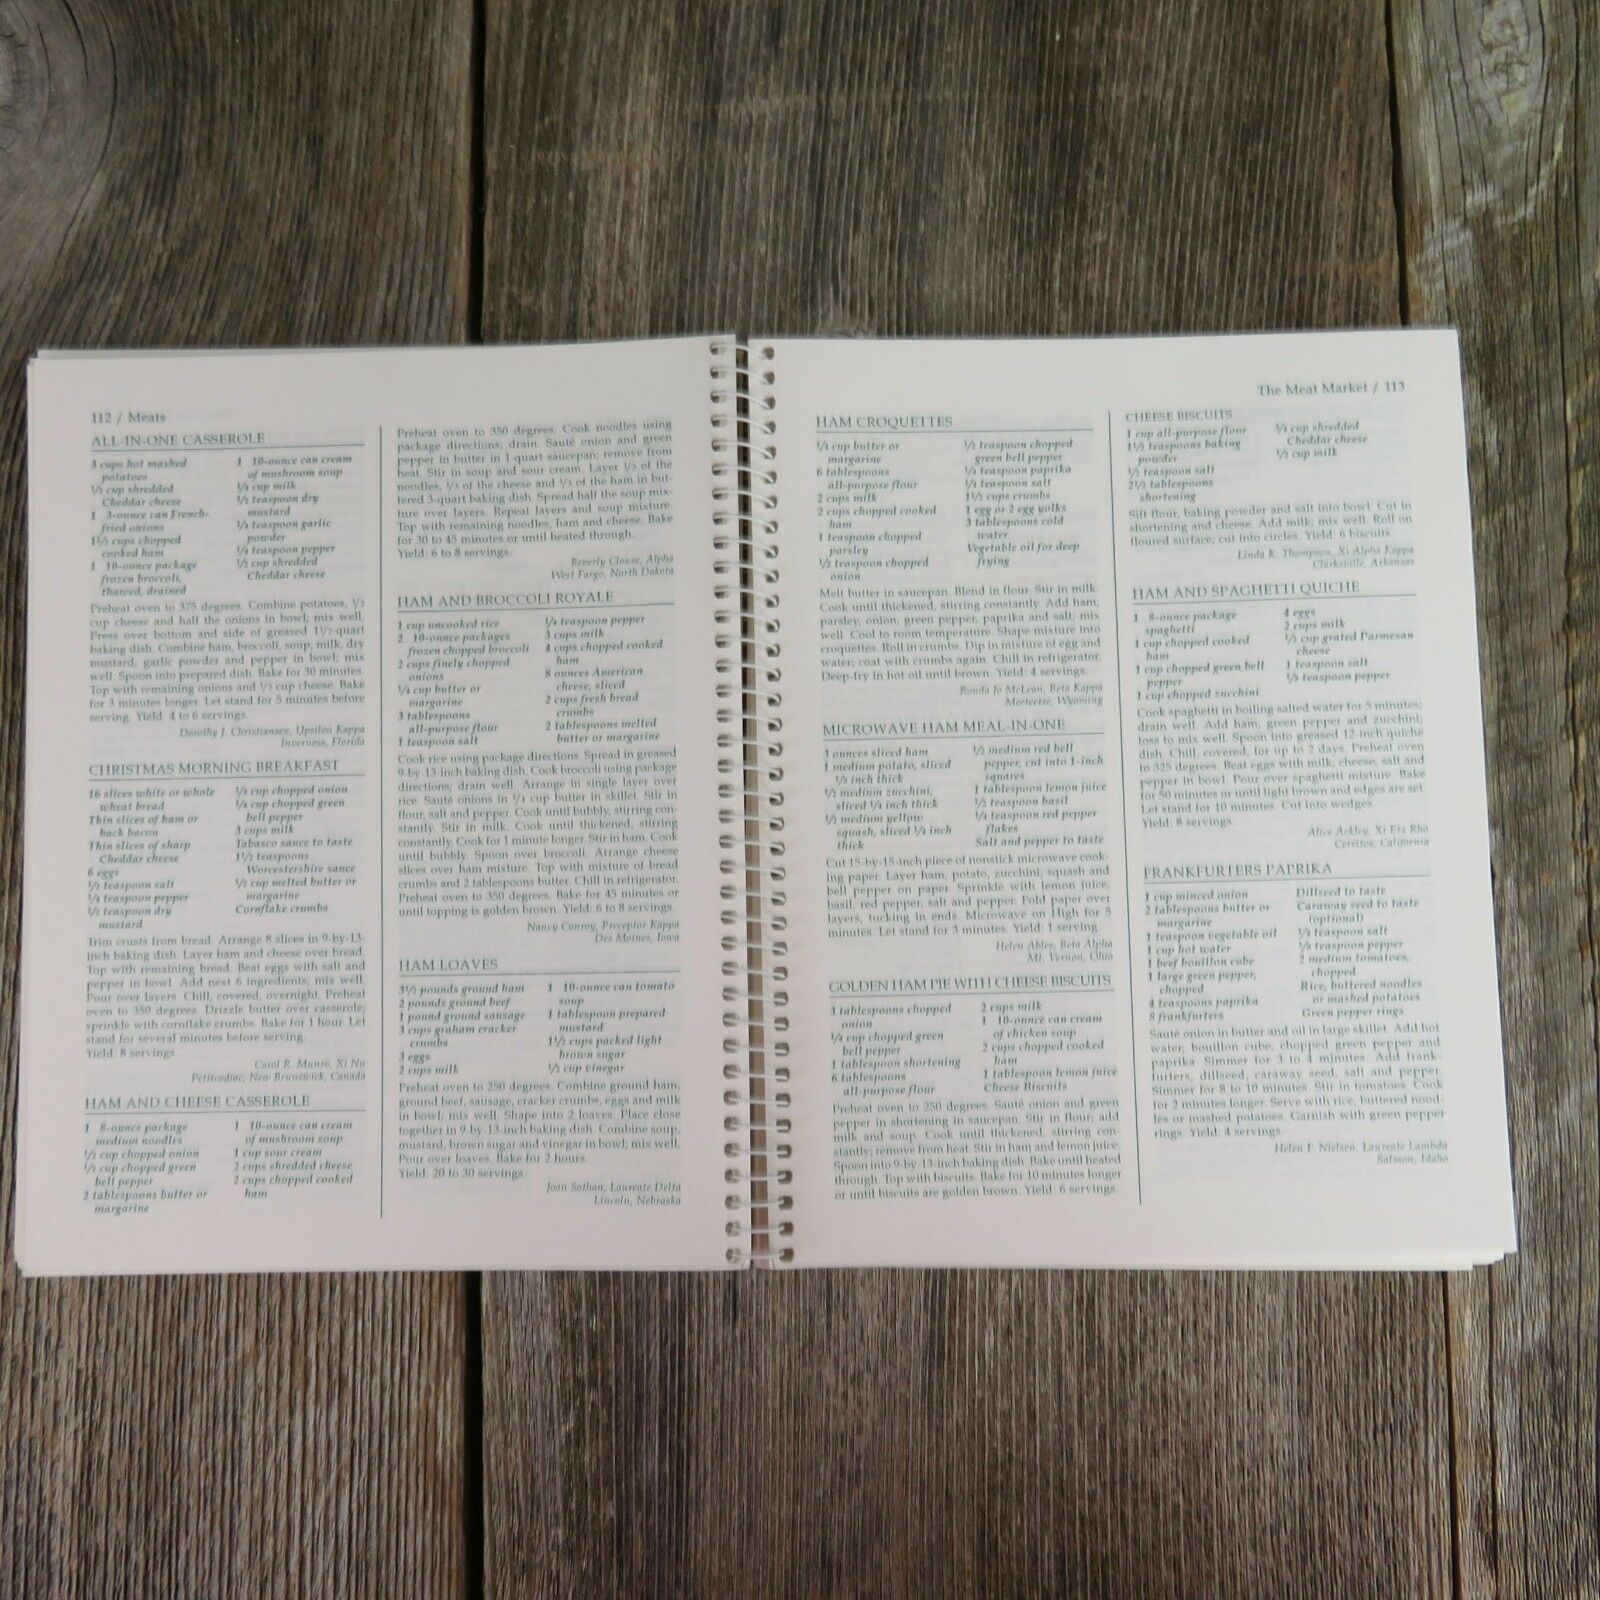 112 / Meats
ALL-IN-ONE CASSEROLE
3 cups hot mashed
potatoes
1/2 cup shredded
Cheddar cheese
1 3-ounce can French-
fried onions
1 1/2 cups chopped
cooked ham
1 10-ounce package
frozen broccoli,
thawed, drained
1 10-ounce can cream
of mushroom soup
1/4 cup milk
1/2 teaspoon dry
mustard
1/4 teaspoon garlic
powder
1/4 teaspoon pepper
1/2 cup shredded
Cheddar cheese
Preheat oven to 375 degrees. Combine potatoes, 1/2
cup cheese and half the onions in bowl; mix well.
Press over bottom and side of greased 1 1/2-quart
baking dish. Combine ham, broccoli, soup, milk, dry
mustard, garlic powder and pepper in bowl; mix
well. Spoon into prepared dish. Bake for 30 minutes.
Top with remaining onions and 1/2 cup cheese. Bake
for 3 minutes longer. Let stand for 5 minutes before
serving. Yield: 4 to 6 servings.
Dorothy J. Christiansen, Upsilon Kappa
Inverness, Florida
CHRISTMAS MORNING BREAKFAST
16 slices white or whole
wheat bread
Thin slices of ham or
back bacon
Thin slices of sharp
Cheddar cheese
6 eggs
1/2 teaspoon salt
1/4 teaspoon pepper
1/2 teaspoon dry
mustard
1/4 cup chopped onion
1/4 cup chopped green
bell pepper
3 cups milk
Tabasco sauce to taste
1 1/2 teaspoons
Worcestershire sauce
1/2 cup melted butter or
margarine
Cornflake crumbs
Trim crusts from bread. Arrange 8 slices in 9-by-13-
inch baking dish. Layer ham and cheese over bread.
Top with remaining bread. Beat eggs with salt and
pepper in bowl. Add next 6 ingredients; mix well.
Pour over layers. Chill, covered, overnight. Preheat
oven to 350 degrees. Drizzle butter over casserole;
sprinkle with cornflake crumbs. Bake for 1 hour. Let
stand for several minutes before serving.
Yield: 8 servings.
Carol R. Munro, Xi Nu
Petitcodiac, New Brunswick, Canada
HAM AND CHEESE CASSEROLE
1 8-ounce package
medium noodles
1/2 cup chopped onion
1/2 cup chopped green
bell pepper
2 tablespoons butter or
margarine
1 10-ounce can cream
of mushroom soup
1 cup sour cream
2 cups shredded cheese
2 cups chopped cooked
ham
Preheat oven to 350 degrees. Cook noodles using
package directions; drain. Sauté onion and green
pepper in butter in 1-quart saucepan; remove from
heat. Stir in soup and sour cream. Layer 1/3 of the
noodles, 1/3 of the cheese and 1/3 of the ham in but-
tered 3-quart baking dish. Spread half the soup mix-
ture over layers. Repeat layers and soup mixture.
Top with remaining noodles, ham and cheese. Bake
for 30 to 45 minutes or until heated through.
Yield: 6 to 8 servings.
Beverly Clouse, Alpha
West Fargo, North Dakota
HAM AND BROCCOLI ROYALE
1 cup uncooked rice
2 10-ounce packages
frozen chopped broccoli
2 cups finely chopped
onions
1/4 cup butter or
margarine
3 tablespoons
all-purpose flour
1 teaspoon salt
1/4 teaspoon pepper
3 cups milk
4 cups chopped cooked
ham
8 ounces American
cheese, sliced
2 cups fresh bread
crumbs
2 tablespoons melted
butter or margarine
Cook rice using package directions. Spread in greased
9-by-13-inch baking dish. Cook broccoli using package
directions; drain well. Arrange in single layer over
rice. Sauté onions in 1/4 cup butter in skillet. Stir in
flour, salt and pepper. Cook until bubbly, stirring con-
stantly. Stir in milk. Cook until thickened, stirring
constantly. Cook for 1 minute longer. Stir in ham. Cook
until bubbly. Spoon over broccoli. Arrange cheese
slices over ham mixture. Top with mixture of bread
crumbs and 2 tablespoons butter. Chill in refrigerator.
Preheat oven to 350 degrees. Bake for 45 minutes or
until topping is golden brown. Yield: 6 to 8 servings.
Nancy Conroy, Preceptor Kappa
Des Moines, Iowa
HAM LOAVES
3 1/2 pounds ground ham
2 pounds ground beef
1 pound ground sausage
3 cups graham cracker
crumbs
3 eggs
2 cups milk
1 10-ounce can tomato
soup
1 tablespoon prepared
mustard
1 1/2 cups packed light
brown sugar
1/2 cup vinegar
Preheat oven to 250 degrees. Combine ground ham,
ground beef, sausage, cracker crumbs, eggs and milk
in bowl; mix well. Shape into 2 loaves. Place close
together in 9-by-13-inch baking dish. Combine soup,
mustard, brown sugar and vinegar in bowl; mix well.
Pour over loaves. Bake for 2 hours.
Yield: 20 to 30 servings.
Joan Sothan, Laureate Delta
Lincoln, Nebraska
The Meat Market / 113
HAM CROQUETTES
1/4 cup butter or
margarine
6 tablespoons
all-purpose flour
2 cups milk
2 cups chopped cooked
ham
1 teaspoon chopped
parsley
1/2 teaspoon chopped
onion
1/2 teaspoon chopped
green bell pepper
1/4 teaspoon paprika
1/4 teaspoon salt
1 1/2 cups crumbs
1 egg or 2 egg yolks
3 tablespoons cold
water
Vegetable oil for deep
frying
Melt butter in saucepan. Blend in flour. Stir in milk.
Cook until thickened, stirring constantly. Add ham,
parsley, onion, green pepper, paprika and salt; mix
well. Cool to room temperature. Shape mixture into
croquettes. Roll in crumbs. Dip in mixture of egg and
water; coat with crumbs again. Chill in refrigerator.
Deep-fry in hot oil until brown. Yield: 4 servings.
Ronda Jo McLean, Beta Kappa
Meeteetse, Wyoming
MICROWAVE HAM MEAL-IN-ONE
3 ounces sliced ham
1 medium potato, sliced
1/8 inch thick
1/2 medium zucchini,
sliced 1/4 inch thick
1/2 medium yellow
squash, sliced 1/4 inch
thick
1/2 medium red bell
pepper, cut into 1-inch
squares
1 tablespoon lemon juice
1/2 teaspoon basil
1/4 teaspoon red pepper
flakes
Salt and pepper to taste
Cut 15-by-15-inch piece of nonstick microwave cook-
ing paper. Layer ham, potato, zucchini, squash and
bell pepper on paper. Sprinkle with lemon juice,
basil, red pepper, salt and pepper. Fold paper over
layers, tucking in ends. Microwave on High for 5
minutes. Let stand for 3 minutes. Yield: 1 serving.
Helen Ables, Beta Alpha
Mt. Vernon, Ohio
GOLDEN HAM PIE WITH CHEESE BISCUITS
3 tablespoons chopped
onion
1/4 cup chopped green
bell pepper
1 tablespoon shortening
6 tablespoons
all-purpose flour
2 cups milk
1 10-ounce can cream
of chicken soup
2 cups chopped cooked
ham
1 tablespoon lemon juice
Cheese Biscuits
Preheat oven to 250 degrees. Sauté onion and green
pepper in shortening in saucepan. Stir in flour; add
milk and soup. Cook until thickened, stirring con-
stantly; remove from heat. Stir in ham and lemon juice.
Spoon into 9-by-13-inch baking dish. Bake until heated
through. Top with biscuits. Bake for 10 minutes longer
or until biscuits are golden brown. Yield: 6 servings.
CHEESE BISCUITS
1 cup all-purpose flour
1 1/2 teaspoons baking
powder
1/2 teaspoon salt
2 1/2 tablespoons
shortening
1/4 cup shredded
Cheddar cheese
1/2 cup milk
Sift flour, baking powder and salt into bowl. Cut in
shortening and cheese. Add milk; mix well. Roll on
floured surface; cut into circles. Yield: 6 biscuits.
Linda K. Thompson, Xi Alpha Kappa
Clarksville, Arkansas
HAM AND SPAGHETTI QUICHE
1 8-ounce package
spaghetti
1 cup chopped cooked
ham
1 cup chopped green bell
pepper
1 cup chopped zucchini
4 eggs
2 cups milk
1/2 cup grated Parmesan
cheese
1 teaspoon salt
1/8 teaspoon pepper
Cook spaghetti in boiling salted water for 5 minutes;
drain well. Add ham, green pepper and zucchini;
toss to mix well. Spoon into greased 12-inch quiche
dish. Chill, covered, for up to 2 days. Preheat oven
to 325 degrees. Beat eggs with milk, cheese, salt and
pepper in bowl. Pour over spaghetti mixture. Bake
for 50 minutes or until light brown and edges are set.
Let stand for 10 minutes. Cut into wedges.
Yield: 8 servings.
Alice Ackley, Xi Eta Rho
Cerritos, California
FRANKFURTERS PAPRIKA
1 cup minced onion
2 tablespoons butter or
margarine
1 teaspoon vegetable oil
1 cup hot water
1 beef bouillon cube
1 large green pepper,
chopped
4 teaspoons paprika
8 frankfurters
Dillseed to taste
Caraway seed to taste
(optional)
1/8 teaspoon salt
1/8 teaspoon pepper
2 medium tomatoes,
chopped
Rice, buttered noodles
or mashed potatoes
Green pepper rings
Sauté onion in butter and oil in large skillet. Add hot
water, bouillon cube, chopped green pepper and
paprika. Simmer for 3 to 4 minutes. Add frank-
furters, dillseed, caraway seed, salt and pepper.
Simmer for 8 to 10 minutes. Stir in tomatoes. Cook
for 2 minutes longer. Serve with rice, buttered nood-
les or mashed potatoes. Garnish with green pepper
rings. Yield: 4 servings.
Helen F. Nielsen, Laureate Lambda
Salmon, Idaho